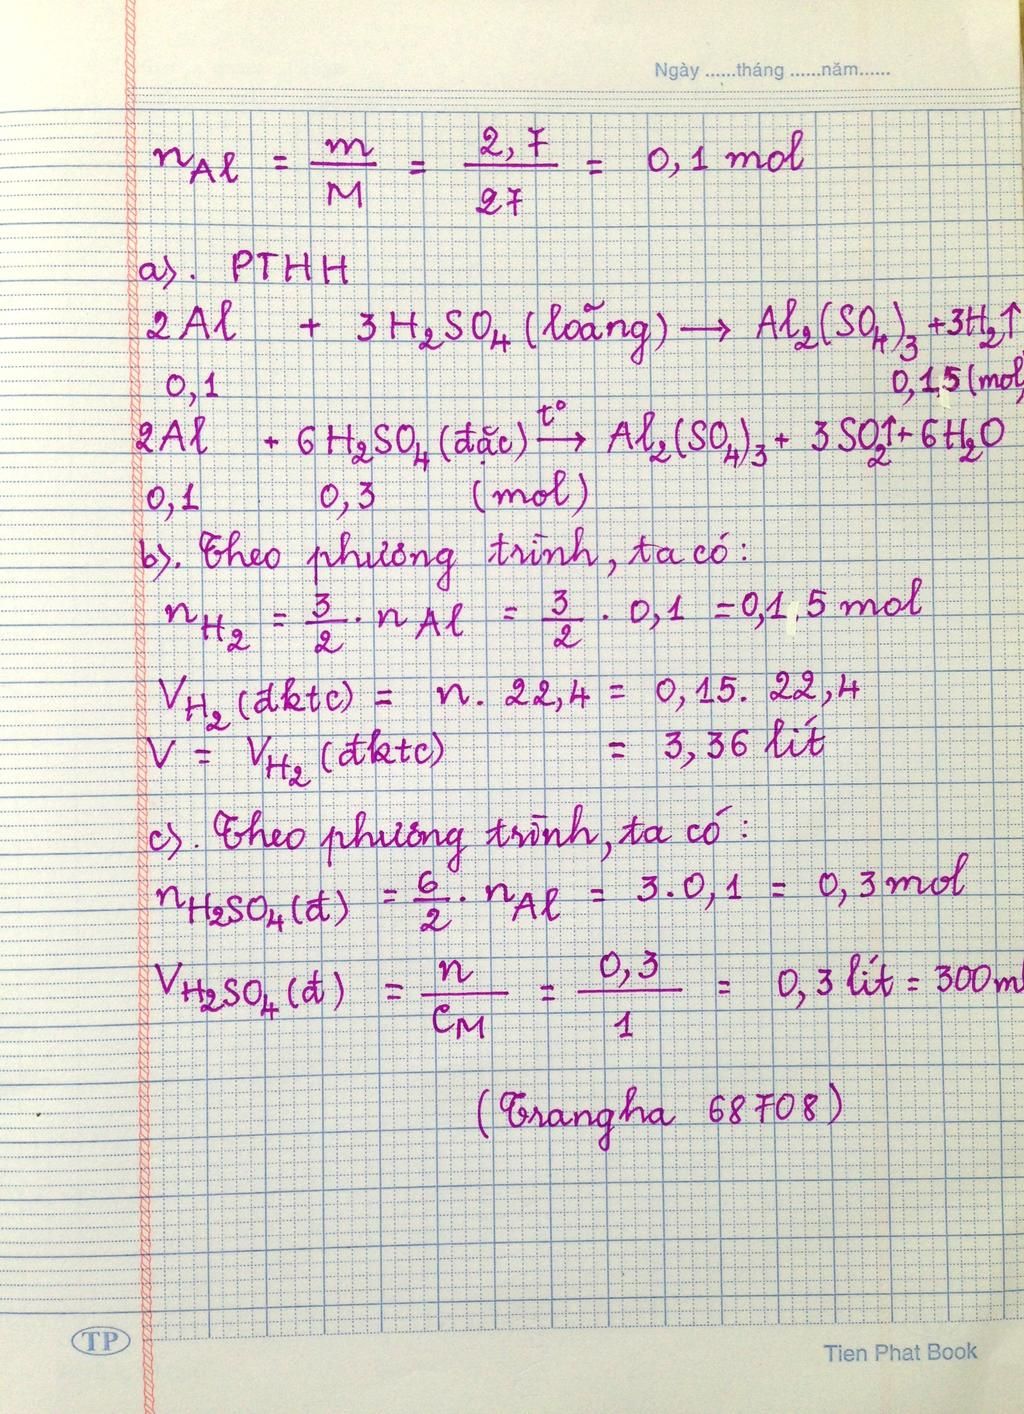 Ngày ......tháng ......năm......
n_Al = m/M = 2,7/27 = 0,1 mol
a). PTHH
2Al + 3H₂SO₄ (loãng) → Al₂(SO₄)₃ + 3H₂↑
0,1 0,15 (mol)
2Al + 6H₂SO₄ (đặc) t° → Al₂(SO₄)₃ + 3SO₂↑ + 6H₂O
0,1 0,3 (mol)
b). Theo phương trình, ta có:
n_H₂ = 3/2 . n_Al = 3/2 . 0,1 = 0,15 mol
V_H₂ (đktc) = n. 22,4 = 0,15. 22,4
V = V_H₂ (đktc) = 3,36 lít
c). Theo phương trình, ta có:
n_H₂SO₄ (đ) = 6/2 . n_Al = 3.0,1 = 0,3 mol
V_H₂SO₄ (đ) = n/C_M = 0,3/1 = 0,3 lít = 300m
(Trangha 68708)
TP
Tien Phat Book